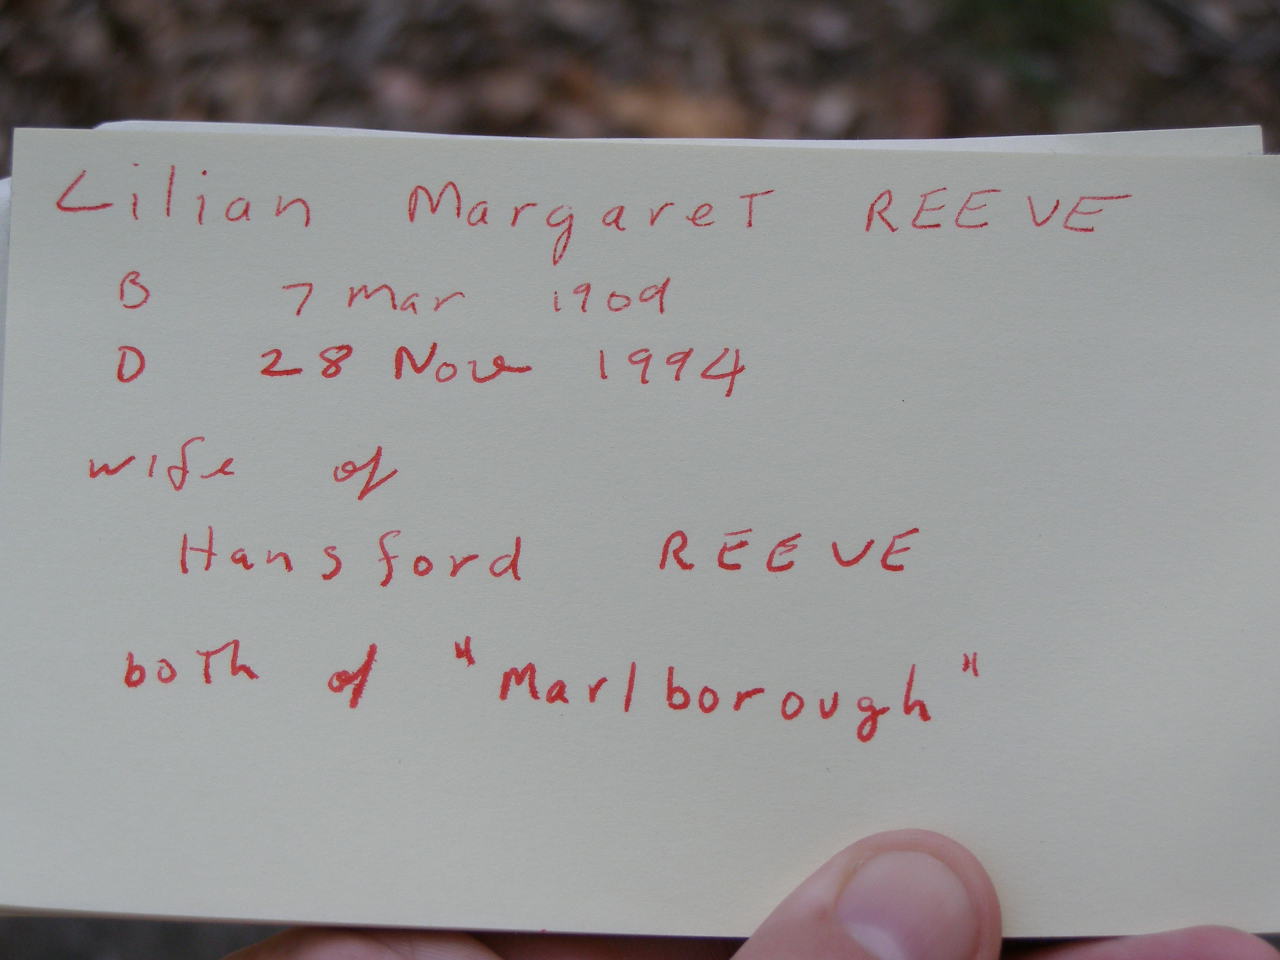 Lilian Margaret REEVE
B 7 Mar 1909
D 28 Nov 1994
wife of
Hansford REEVE
both of "Marlborough"